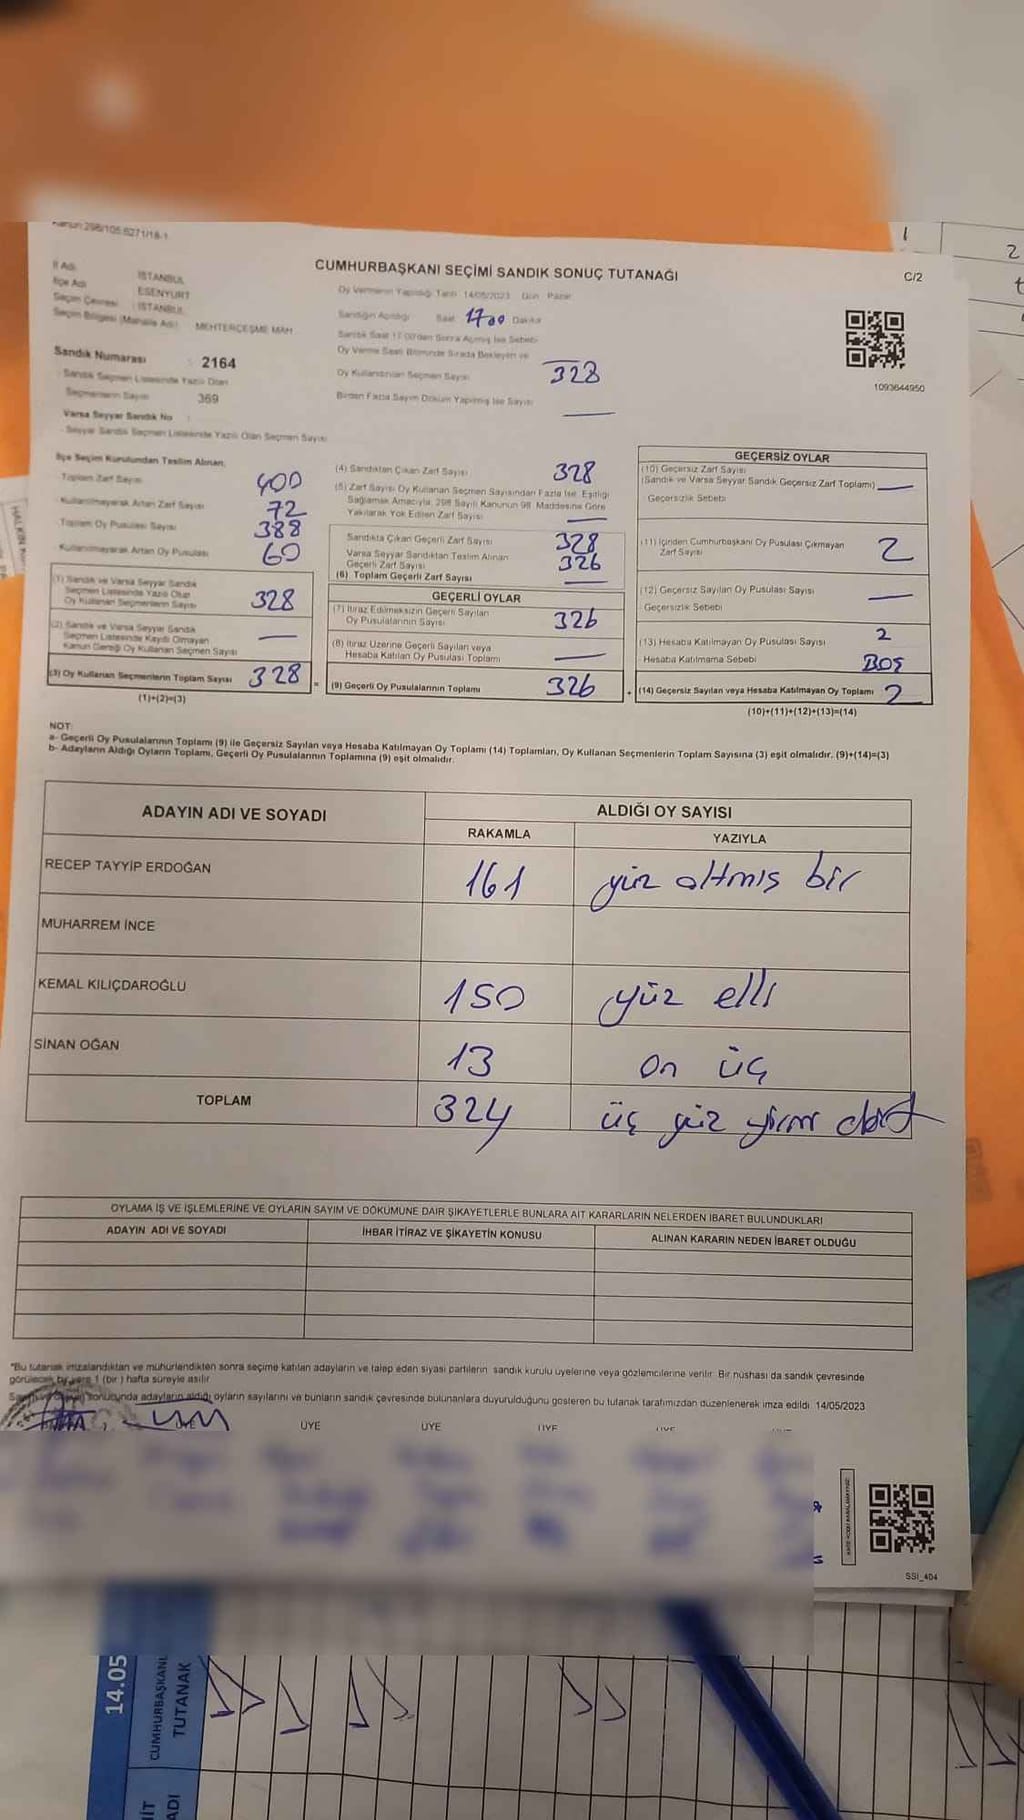 Kanun:298/105.6271/18-1
CUMHURBAŞKANI SEÇİMİ SANDIK SONUÇ TUTANAĞI
C/2
İl Adı : İSTANBUL
İlçe Adı : ESENYURT
Seçim Çevresi : İSTANBUL
Seçim Bölgesi (Mahalle Adı) : MEHTERÇEŞME MAH.
Oy Vermenin Yapıldığı Tarih : 14/05/2023 Gün : Pazar
Sandığın Açıldığı Saat 1700 Dakika
Sandık Saat 17:00'den Sonra Açılmış İse Sebebi
Oy Verme Saati Bitiminde Sırada Bekleyen ve
Oy Kullandırılan Seçmen Sayısı 328
Birden Fazla Sayım Döküm Yapılmış İse Sayısı —
1093644950
Sandık Numarası : 2164
Sandık Seçmen Listesinde Yazılı Olan
Seçmenlerin Sayısı 369
Varsa Seyyar Sandık No :
Seyyar Sandık Seçmen Listesinde Yazılı Olan Seçmen Sayısı
İlçe Seçim Kurulundan Teslim Alınan;
Toplam Zarf Sayısı 400
Kullanılmayarak Artan Zarf Sayısı 72
Toplam Oy Pusulası Sayısı 388
Kullanılmayarak Artan Oy Pusulası 60
(1) Sandık ve Varsa Seyyar Sandık
Seçmen Listesinde Yazılı Olup
Oy Kullanan Seçmenlerin Sayısı 328
(2) Sandık ve Varsa Seyyar Sandık
Seçmen Listesinde Kaydı Olmayan
Kanun Gereği Oy Kullanan Seçmen Sayısı —
(3) Oy Kullanan Seçmenlerin Toplam Sayısı 328
(1)+(2)=(3)
(4) Sandıktan Çıkan Zarf Sayısı 328
(5) Zarf Sayısı Oy Kullanan Seçmen Sayısından Fazla İse, Eşitliği
Sağlamak Amacıyla, 298 Sayılı Kanunun 98. Maddesine Göre
Yakılarak Yok Edilen Zarf Sayısı —
Sandıkta Çıkan Geçerli Zarf Sayısı 328
Varsa Seyyar Sandıktan Teslim Alınan
Geçerli Zarf Sayısı 326
(6) Toplam Geçerli Zarf Sayısı —
GEÇERLİ OYLAR
(7) İtiraz Edilmeksizin Geçerli Sayılan
Oy Pusulalarının Sayısı 326
(8) İtiraz Üzerine Geçerli Sayılan veya
Hesaba Katılan Oy Pusulası Toplamı —
= (9) Geçerli Oy Pusulalarının Toplamı 326
GEÇERSİZ OYLAR
(10) Geçersiz Zarf Sayısı
(Sandık ve Varsa Seyyar Sandık Geçersiz Zarf Toplamı) —
Geçersizlik Sebebi
(11) İçinden Cumhurbaşkanı Oy Pusulası Çıkmayan
Zarf Sayısı 2
(12) Geçersiz Sayılan Oy Pusulası Sayısı —
Geçersizlik Sebebi
(13) Hesaba Katılmayan Oy Pusulası Sayısı 2
Hesaba Katılmama Sebebi BOŞ
+ (14) Geçersiz Sayılan veya Hesaba Katılmayan Oy Toplamı 2
(10)+(11)+(12)+(13)=(14)
NOT:
a- Geçerli Oy Pusulalarının Toplamı (9) ile Geçersiz Sayılan veya Hesaba Katılmayan Oy Toplamı (14) Toplamları, Oy Kullanan Seçmenlerin Toplam Sayısına (3) eşit olmalıdır. (9)+(14)=(3)
b- Adayların Aldığı Oyların Toplamı, Geçerli Oy Pusulalarının Toplamına (9) eşit olmalıdır.
ADAYIN ADI VE SOYADI ALDIĞI OY SAYISI
RAKAMLA YAZIYLA
RECEP TAYYİP ERDOĞAN 161 yüz altmış bir
MUHARREM İNCE
KEMAL KILIÇDAROĞLU 150 yüz elli
SİNAN OĞAN 13 on üç
TOPLAM 324 üç yüz yirmi dört
OYLAMA İŞ VE İŞLEMLERİNE VE OYLARIN SAYIM VE DÖKÜMÜNE DAİR ŞİKAYETLERLE BUNLARA AİT KARARLARIN NELERDEN İBARET BULUNDUKLARI
ADAYIN ADI VE SOYADI İHBAR İTİRAZ VE ŞİKAYETİN KONUSU ALINAN KARARIN NEDEN İBARET OLDUĞU
*Bu tutanak imzalandıktan ve mühürlendikten sonra seçime katılan adayların ve talep eden siyasi partilerin sandık kurulu üyelerine veya gözlemcilerine verilir. Bir nüshası da sandık çevresinde
görülecek bir yere 1 (bir) hafta süreyle asılır
sonucunda adayların aldığı oyların sayılarını ve bunların sandık çevresinde bulunanlara duyurulduğunu gösteren bu tutanak tarafımızdan düzenlenerek imza edildi. 14/05/2023
ÜYE ÜYE ÜYE ÜYE
SSI_404
14.05
CUMHURBAŞKANI
TUTANAK